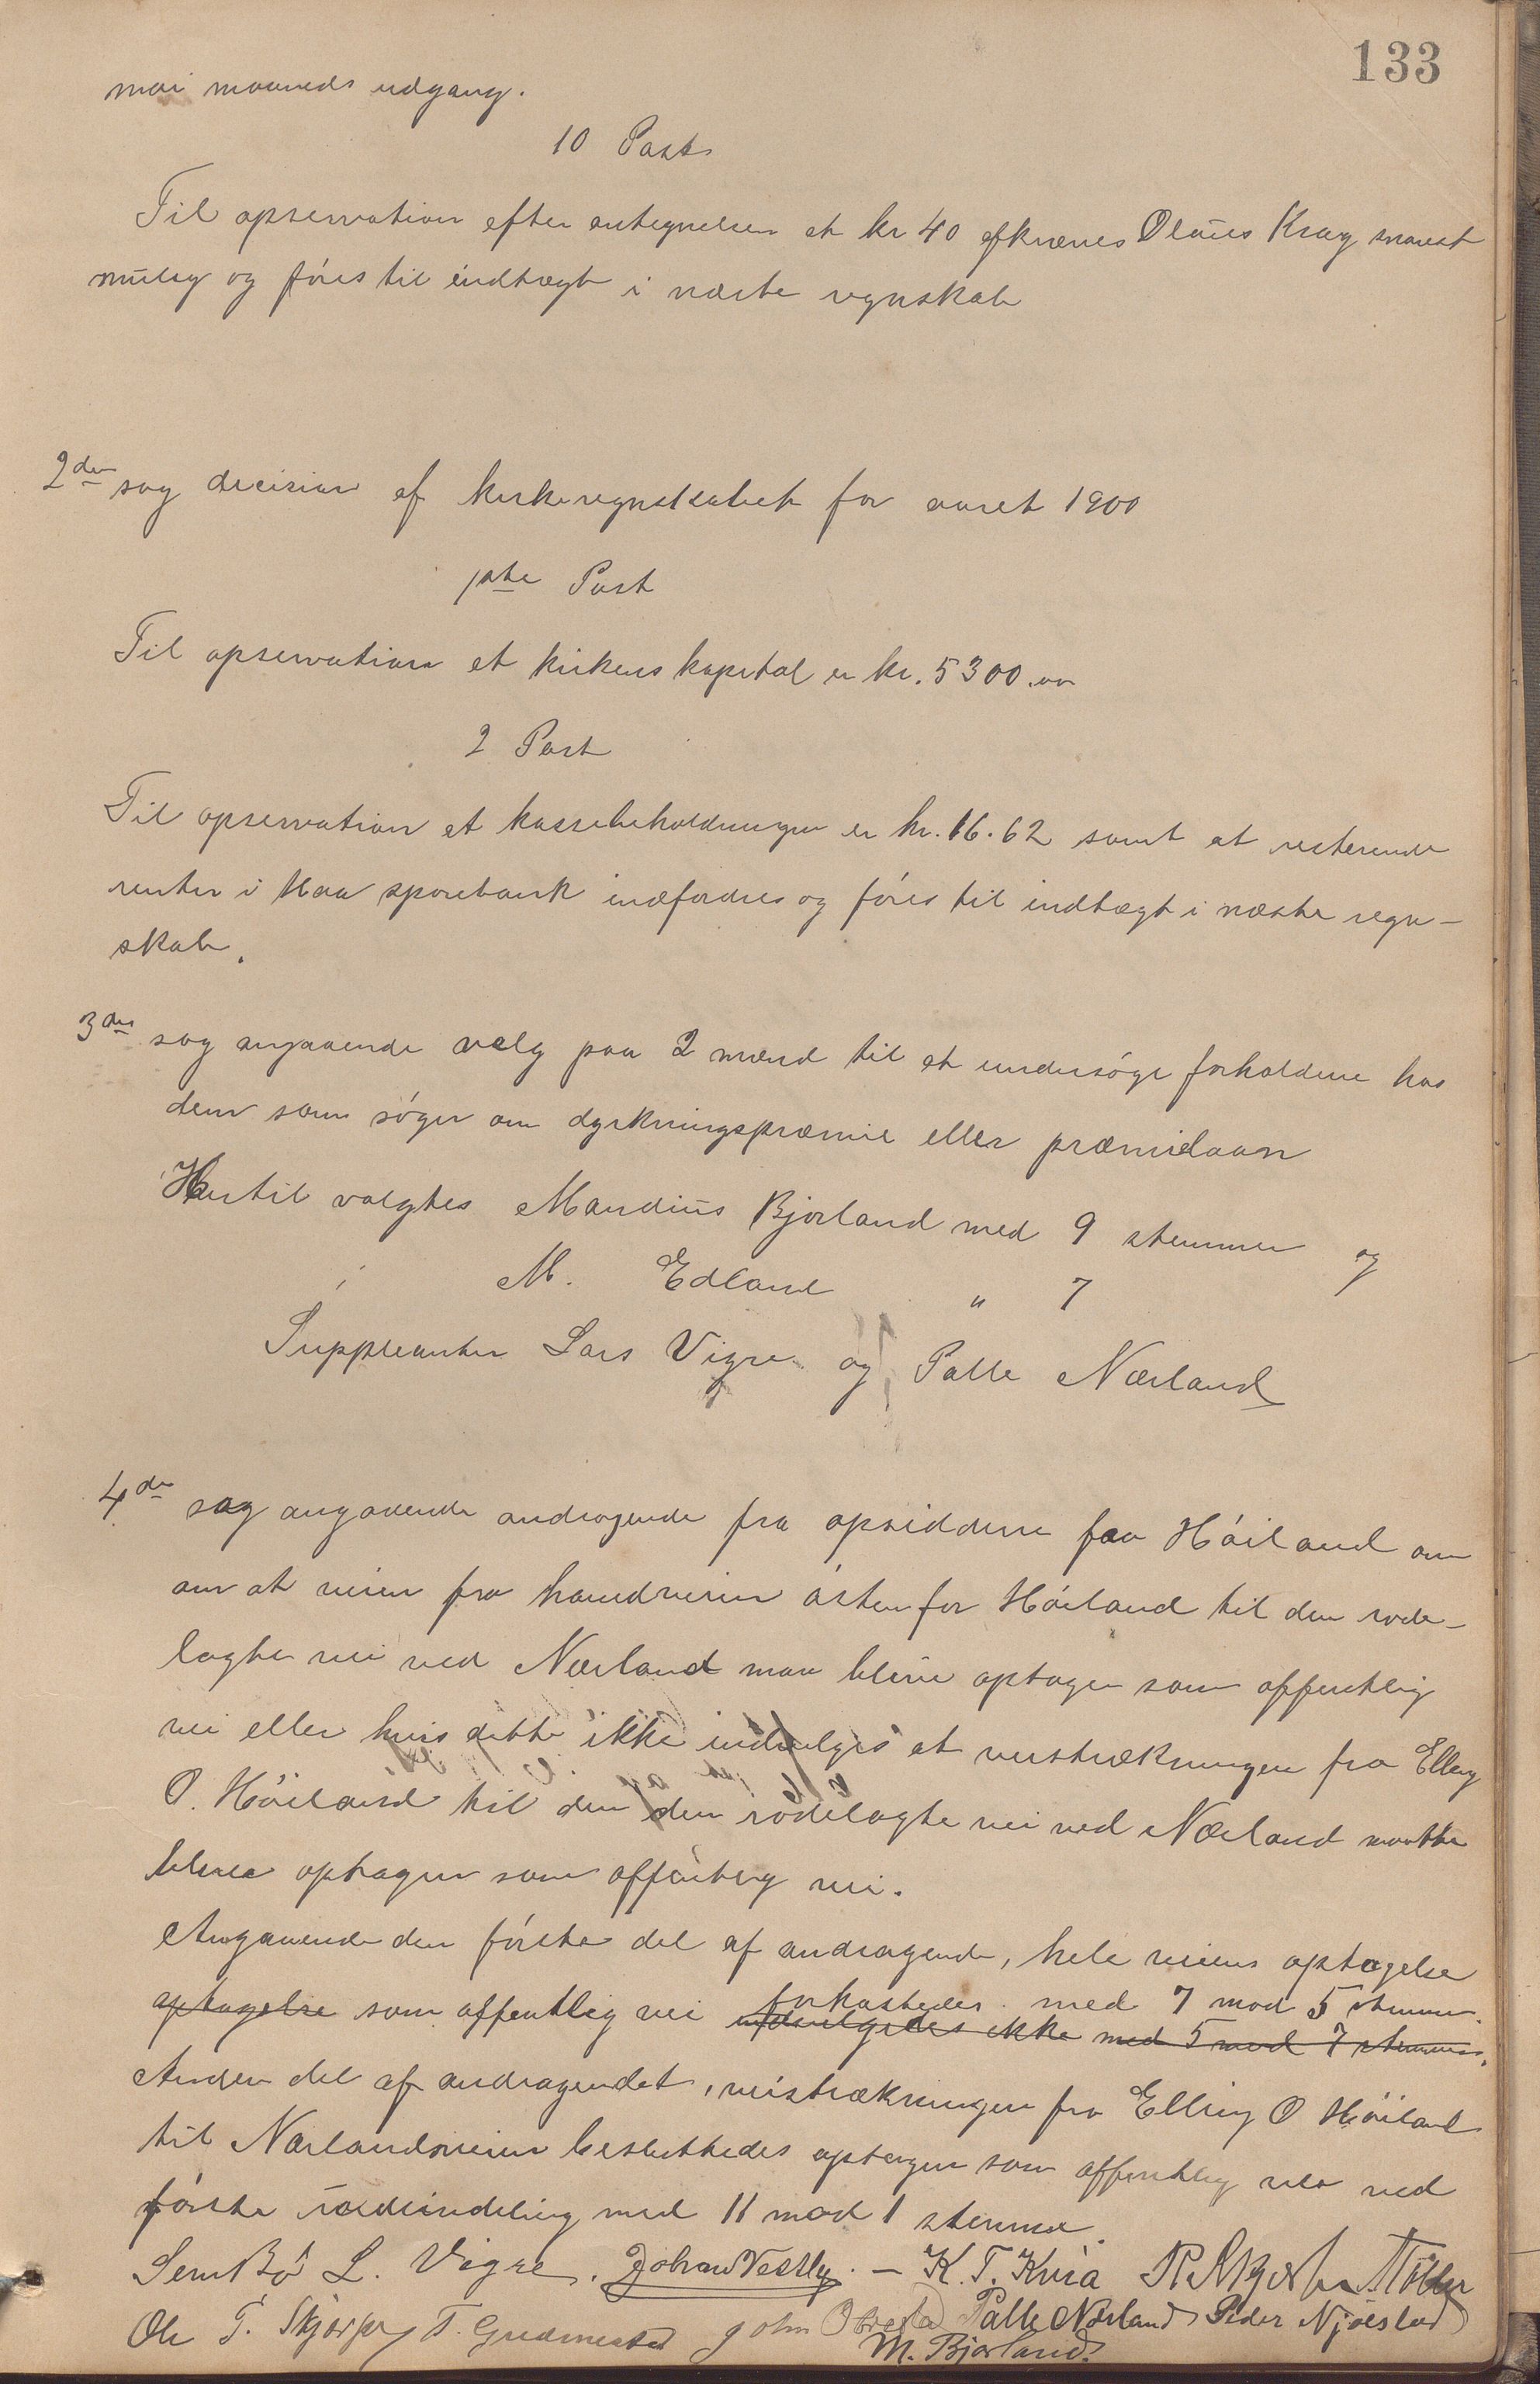 133
mai maaneds udgang.
10 Post
Til opservation efter antegnelsen at kr 40 afkræves Olaus Krag snarest
mulig og föres til indtægt i næste regnskab
2den sag decision af kirkeregnskabet for aaret 1900
1ste Post
Til opservation at kirkens kapital er kr. 5300.00
2 Post
Til opservation at kassebeholdningen er kr. 16.62 samt at resterende
renter i Haa sparebank indfordres og föres til indtægt i næste regn-
skab.
3die sag angaaende valg paa 2 mænd til at undersöge forholdene hos
dem som söger om dyrkningspræmie eller præmielaan
Hertil valgtes Mandius Bjorland med 9 stemmer og
M. Edland " 7
Suppleanter Lars Vigre og Palle Nærland
4de sag angaaende andragende fra opsidderne paa Höiland om
om at veien fra hovedveien östenfor Höiland til den rode-
lagte vei ved Nærland maa blive optagen som offentlig
vei eller hvis dette ikke indvilges at veistrækningen fra Elling
O. Höiland til den den rodelagte vei ved Nærland maatte
blive optagen som offentlig vei.
Angaaende den förste del af andragende, hele veiens optagelse
optagelse som offentlig vei forkastedes med 7 mod 5 stemmer.
indvilgedes ikke med 5 mod 7 stemmer.
Anden del af andragendet, veistrækningen fra Elling O Höiland
til Nærlandsveien besluttedes optagen som offentlig vei ved
förste rodeindeling med 11 mod 1 stemme.
Sem Bö L. Vigre. Johan Vestly. - K. T. Kvia
Ole T. Skjærpe T. Gudmestad John Obrestad Palle Nærland Peder Njölstad
M. Bjorland.